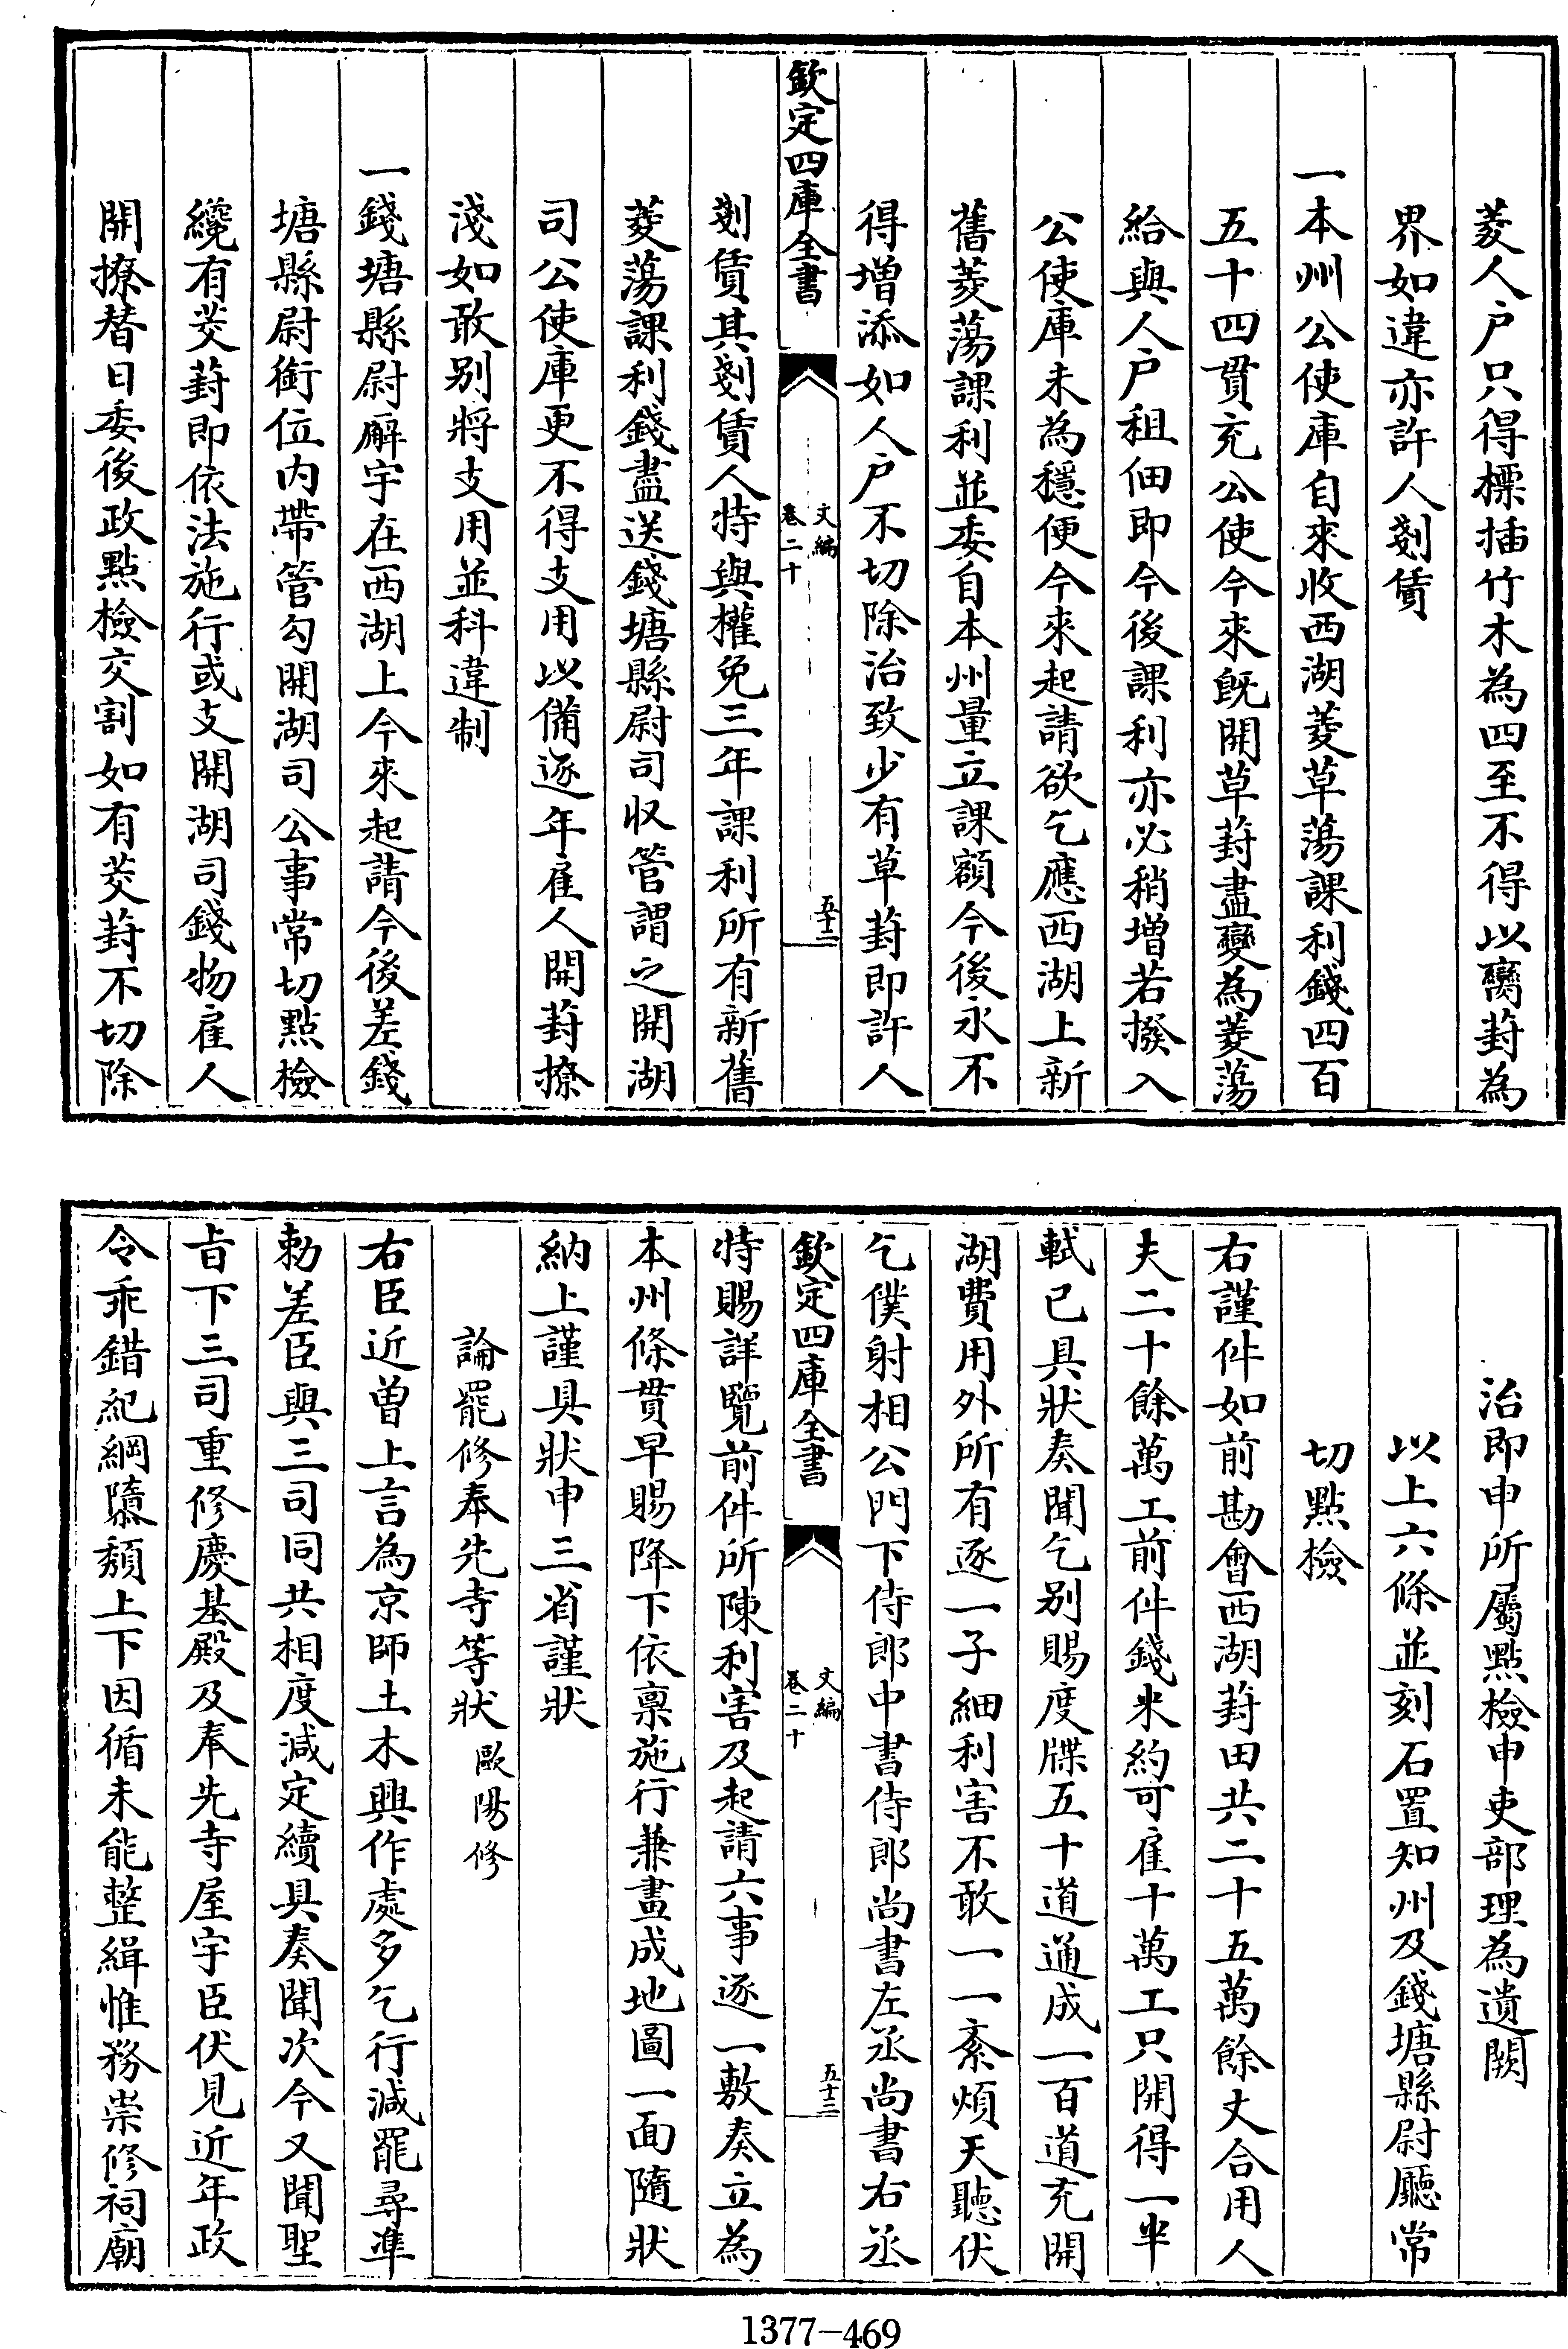 菱人户只得標插竹木為四至不得以臠葑為
界如違亦許人剗賃
一本州公使庫自來收西湖菱草蕩課利錢四百
五十四貫充公使今來既開草葑盡變為菱蕩
給與人户租佃即今後課利亦必稍增若撥入
公使庫未為穩便今來起請欲乞應西湖上新
舊菱蕩課利並委自本州量立課額今後永不
得增添如人户不切除治致少有草葑即許人
欽定四庫全書
文編
卷二十
五十二
剗賃其剗賃人特與權免三年課利所有新舊
菱蕩課利錢盡送錢塘縣尉司収管謂之開湖
司公使庫更不得支用以備逐年雇人開葑撩
淺如敢别將支用並科違制
一錢塘縣尉廨宇在西湖上今來起請今後差錢
塘縣尉銜位内帶管勾開湖司公事常切點檢
纔有茭葑即依法施行或支開湖司錢物雇人
開撩替日委後政點檢交割如有茭葑不切除
治即申所屬點檢申吏部理為遺闕
以上六條並刻石置知州及錢塘縣尉廳常
切點檢
右謹件如前勘會西湖葑田共二十五萬餘丈合用人
夫二十餘萬工前件錢米約可雇十萬工只開得一半
軾已具狀奏聞乞别賜度牒五十道通成一百道充開
湖費用外所有逐一子細利害不敢一一紊煩天聽伏
乞僕射相公門下侍郎中書侍郎尚書左丞尚書右丞
欽定四庫全書
文編
卷二十
五十三
特賜詳覽前件所陳利害及起請六事逐一敷奏立為
本州條貫早賜降下依禀施行兼畫成地圖一面隨狀
納上謹具狀申三省謹狀
論罷修奉先寺等狀 歐陽修
右臣近曽上言為京師土木興作處多乞行減罷尋凖
勅差臣與三司同共相度減定續具奏聞次今又聞聖
㫖下三司重修慶基殿及奉先寺屋宇臣伏見近年政
令乖錯紀綱隳頽上下因循未能整緝惟務崇修祠廟
1377—469